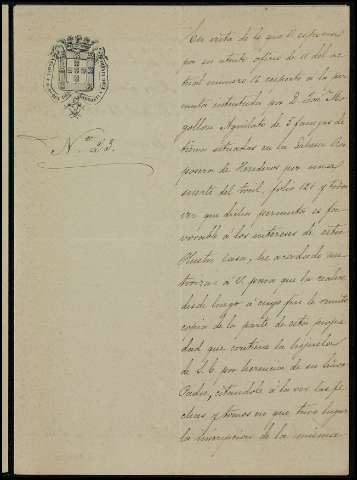 Nº 23.
En vista de lo que V. expone
por su atento oficio de 11 del ac
tual numero 12 respecto a la per
muta intentada por D. José Mº
gollon Aquilate de 5 fanegas de
tierra situadas en la Dehesa
de Henderos por una
suerte del trail, folio 121 y toda
vez que dicha permuta es fa
vorable á los intereses de esta
Ilustre casa, he acordado au
torizar á V. para que la realice
desde luego á cuyo fin le remito
copia de la parte de esta propie
dad que contiene la hijuela
de S. E. por herencia de su Señor
Padre, citandole á la vez las fe
chas y tomos en que tuvo lugar
la inscripcion de la misma